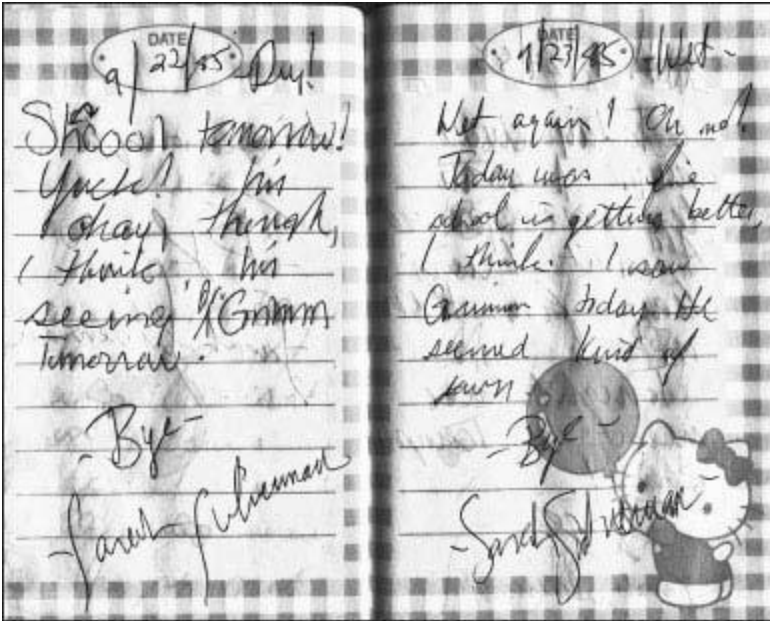 DATE
9/22/85 - Dry!
School tomorrow!
Yuck! I'm
okay, though,
I think I'm
seeing Dr. Grimm
Tomorrow.
- Bye -
- Sarah
DATE
9/23/85 - Wet -
Wet again! Oh no!
Today was fine
school is getting better,
I think. I saw
Grimm today. He
seemed kind of
- Bye -
- Sarah